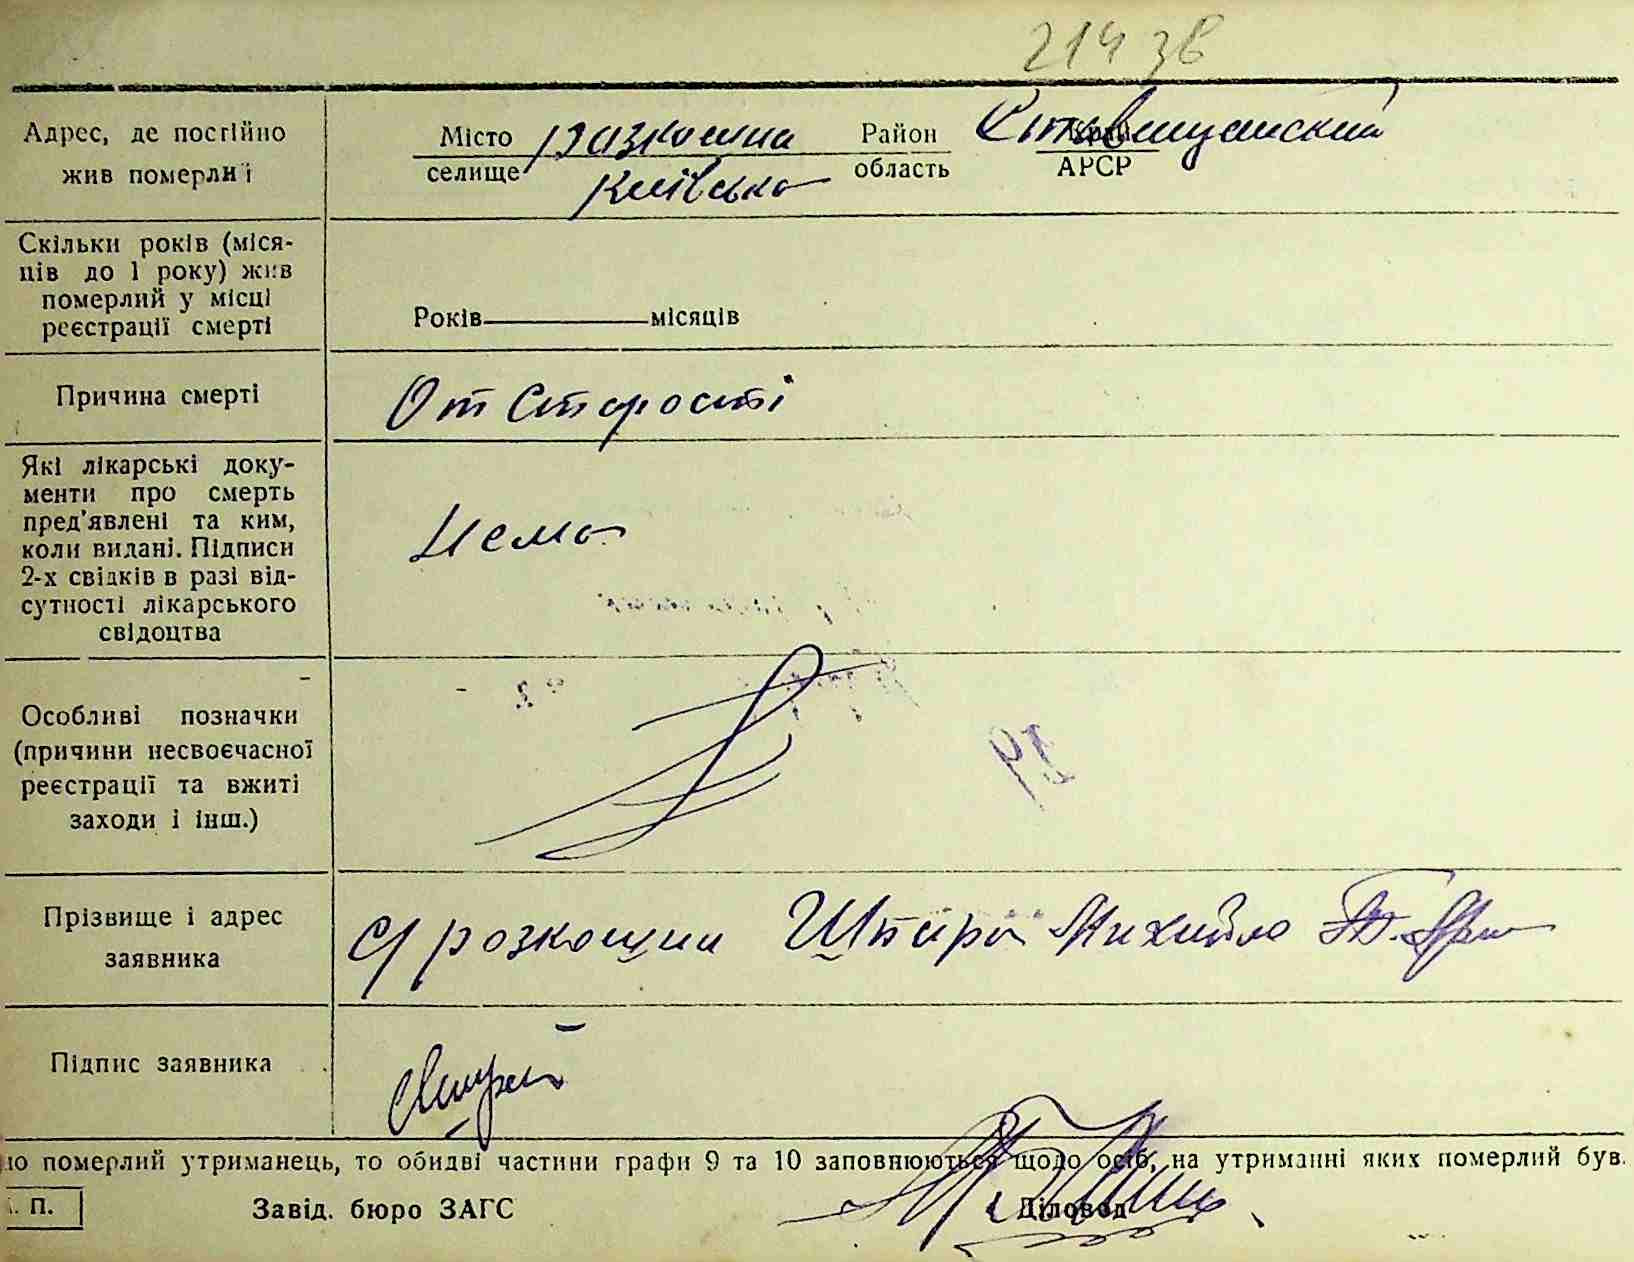 214 зв
Адрес, де постійно
жив померлиї
Місто Район Край
селище область АРСР
Розкошна Ставищанский
Київсько
Скільки років (міся-
ців до 1 року) жив
померлий у місці
реєстрації смерті
Років місяців
Причина смерті
От Старості
Які лікарські доку-
менти про смерть
пред'явлені та ким,
коли видані. Підписи
2-х свідків в разі від-
сутності лікарського
свідоцтва
Нема
Особливі позначки
(причини несвоєчасної
реєстрації та вжиті
заходи і інш.)
Прізвище і адрес
заявника
розкошни Михайло
Підпис заявника
що померлий утриманець, то обидві частини графи 9 та 10 заповнюються щодо осіб, на утриманні яких померлий був.
П. Завід. бюро ЗАГС Діловод